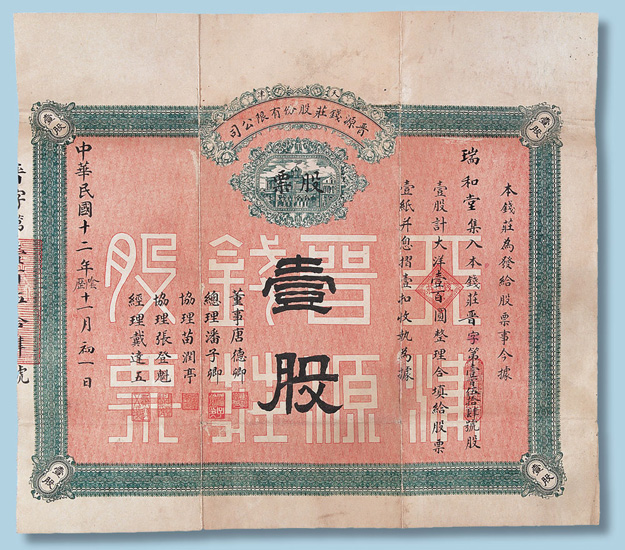 晉源錢莊股份有限公司
股票
壹股
壹股
本錢莊為發給股票事今據
瑞和堂集入本錢莊晋字第壹百伍拾肆號股
壹股計大洋壹百圓整理合填給股票
壹紙并息摺壹扣收執為據
壹股
董事唐德卿
總理潘子卿
協理苗潤亭
協理張登魁
經理戴達五
中華民國十二年陰曆十一月初一日
天津晋源錢莊股票
壹股
壹股